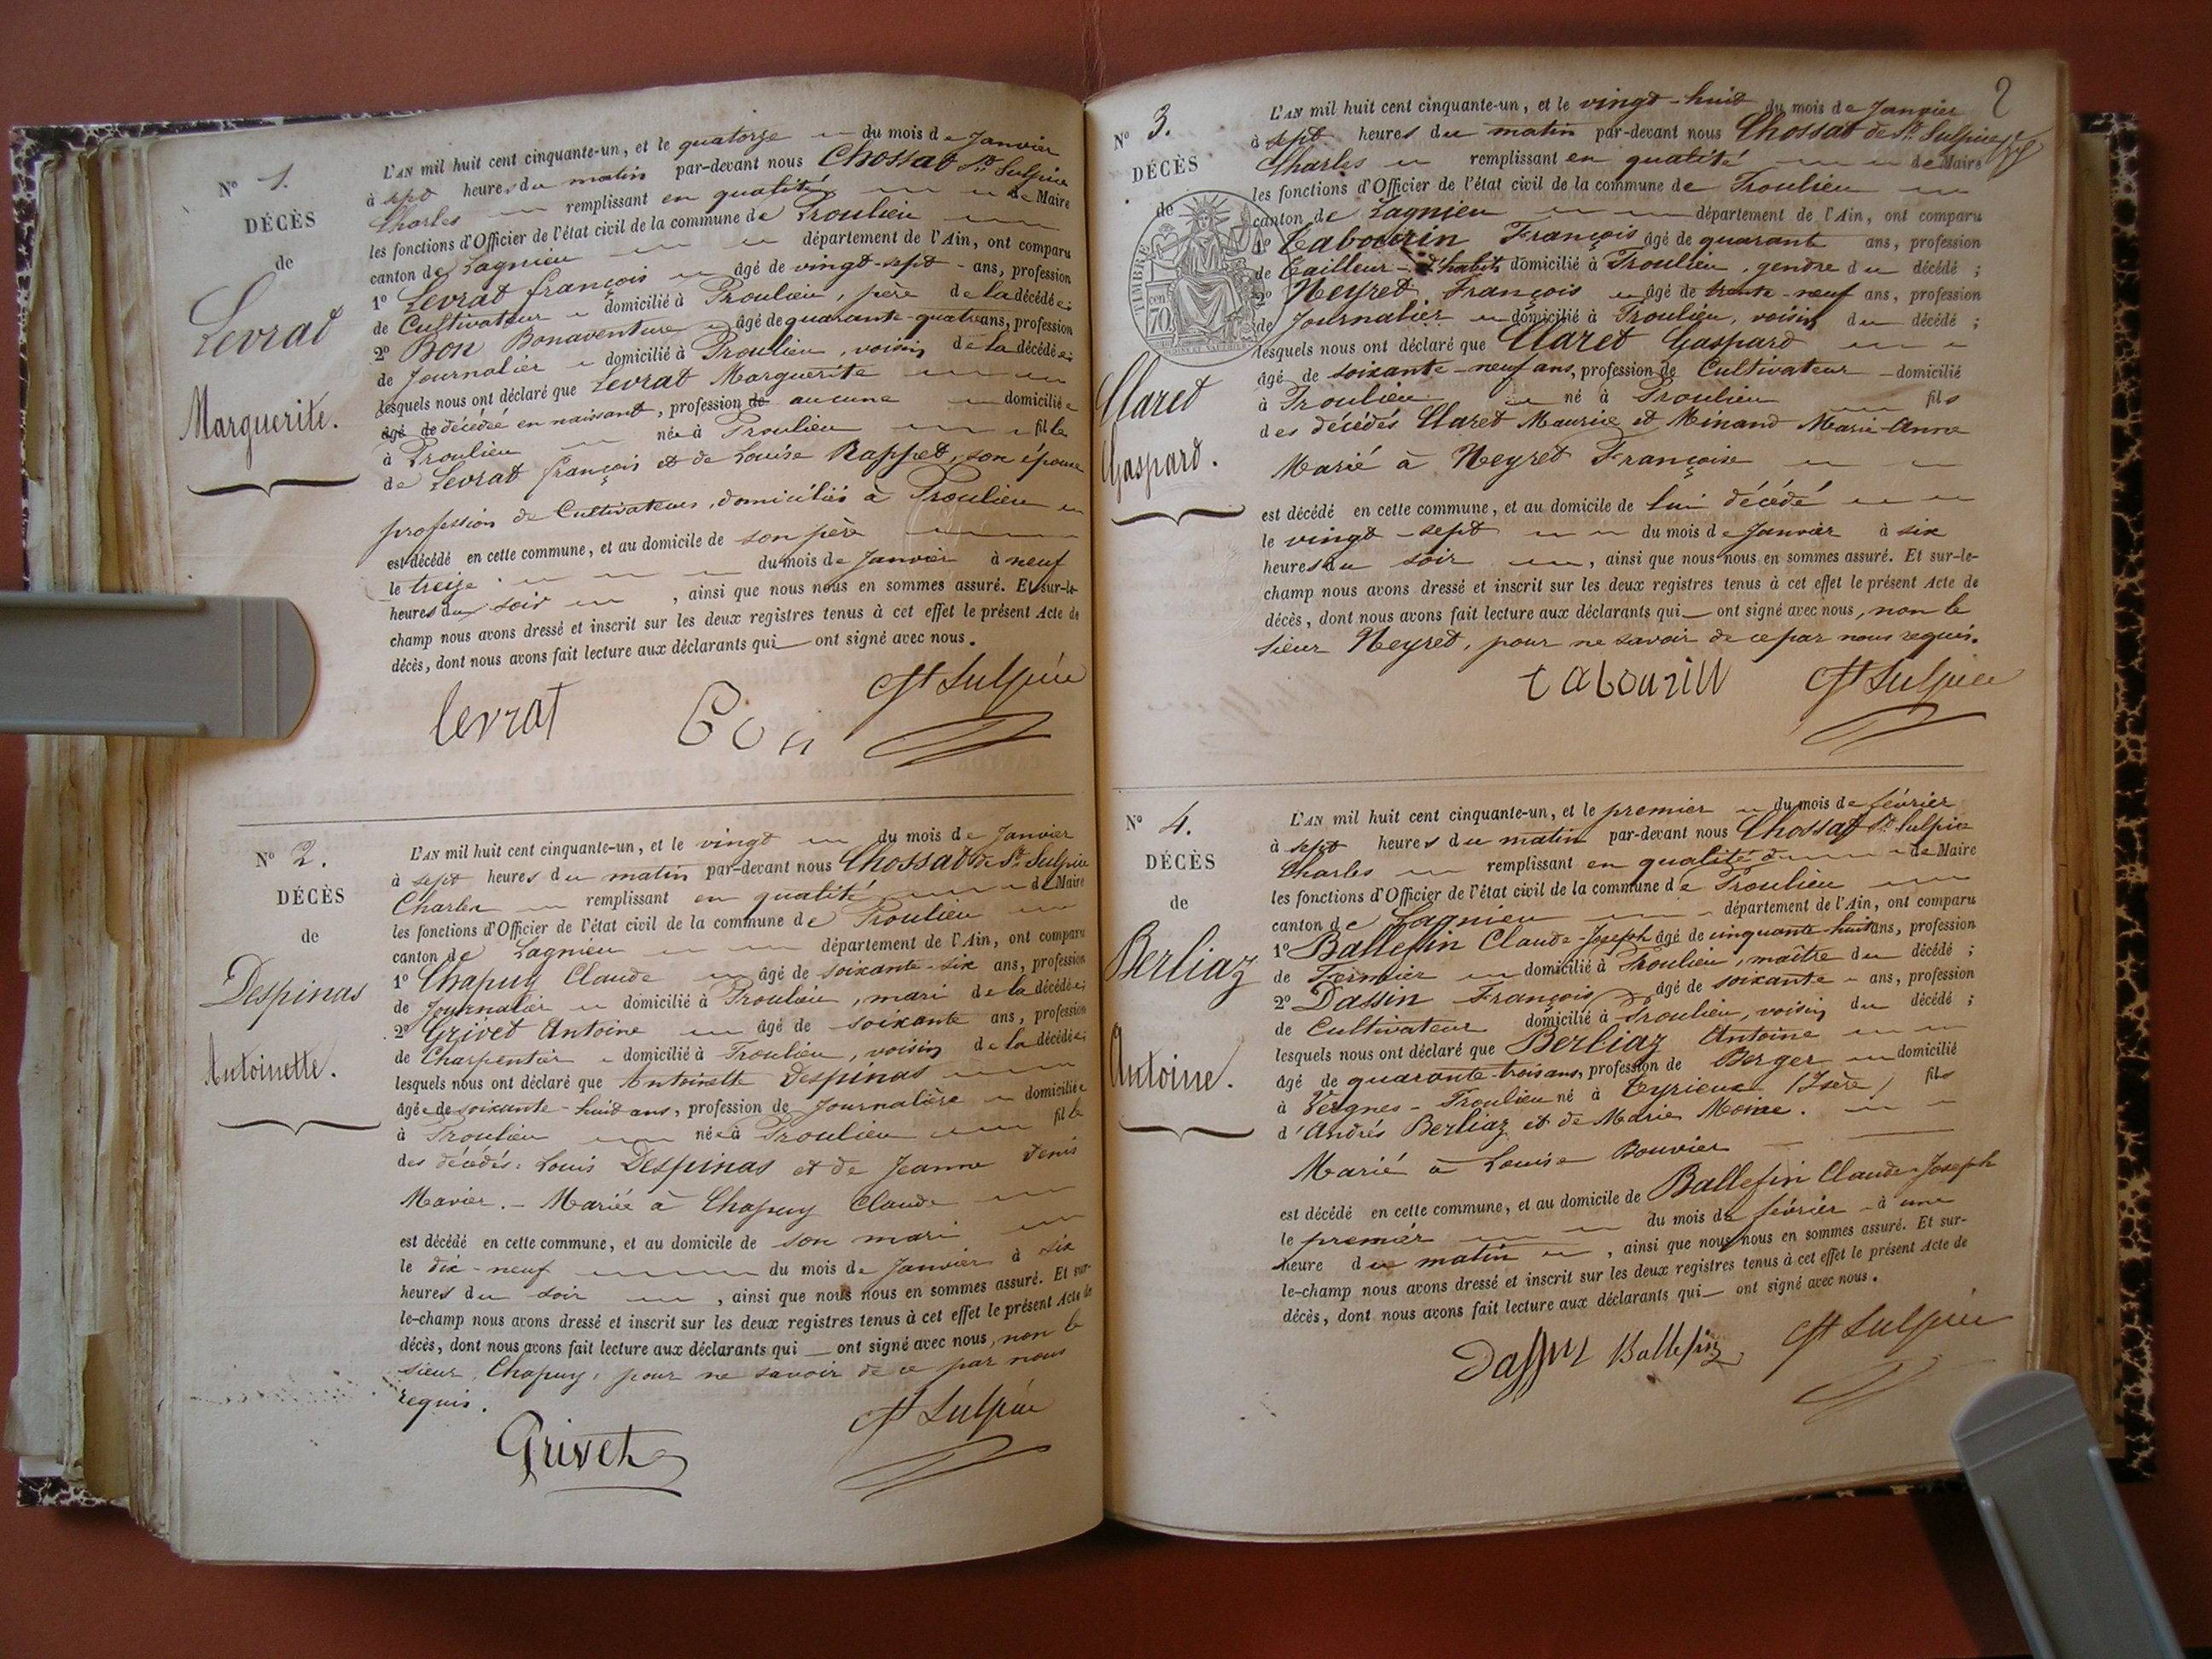 N° 1.
DÉCÈS
de
Levrat
Marguerite.
L'AN mil huit cent cinquante-un, et le quatorze du mois de Janvier
à sept heures du matin par-devant nous Chossat St. Sulpice
Charles remplissant en qualité de Maire
les fonctions d'Officier de l'état civil de la commune de Proulieu
canton de Lagnieu département de l'Ain, ont comparu
1° Levrat françois âgé de vingt-sept ans, profession
de Cultivateur domicilié à Proulieu, père de la décédée;
2° Bon Bonaventure âgé de quarante-quatre ans, profession
de Journalier domicilié à Proulieu, voisin de la décédée;
lesquels nous ont déclaré que Levrat Marguerite
âgé de décédée en naissant, profession de aucune domiciliée
à Proulieu née à Proulieu fille
de Levrat françois et de Louise Rappet, son épouse
profession de Cultivateurs, domiciliés à Proulieu
est décédé en cette commune, et au domicile de son père
le treize du mois de Janvier à neuf
heures du soir, ainsi que nous nous en sommes assuré. Et sur-le-
champ nous avons dressé et inscrit sur les deux registres tenus à cet effet le présent Acte de
décès, dont nous avons fait lecture aux déclarants qui — ont signé avec nous.
levrat Bon St Sulpice
N° 2.
DÉCÈS
de
Despinas
Antoinette.
L'AN mil huit cent cinquante-un, et le vingt du mois de Janvier
à sept heures du matin par-devant nous Chossat de St. Sulpice
Charles remplissant en qualité de Maire
les fonctions d'Officier de l'état civil de la commune de Proulieu
canton de Lagnieu département de l'Ain, ont comparu
1° Chapuy Claude âgé de soixante-six ans, profession
de Journalier domicilié à Proulieu, mari de la décédée;
2° Grivet Antoine âgé de soixante ans, profession
de Charpentier domicilié à Proulieu, voisin de la décédée;
lesquels nous ont déclaré que Antoinette Despinas
âgée de soixante-huit ans, profession de Journalière domiciliée
à Proulieu née à Proulieu fille
des décédés: Louis Despinas et de Jeanne Denis
Mavier. – Mariée à Chapuy Claude
est décédé en cette commune, et au domicile de son mari
le dix-neuf du mois de Janvier à six
heures du soir, ainsi que nous nous en sommes assuré. Et sur-
le-champ nous avons dressé et inscrit sur les deux registres tenus à cet effet le présent Acte de
décès, dont nous avons fait lecture aux déclarants qui — ont signé avec nous, non le
sieur Chapuy, pour ne savoir de ce par nous
requis.
Grivet St Sulpice
2
N° 3.
DÉCÈS
de
TIMBRE
70 cen
Claret
Gaspard.
L'AN mil huit cent cinquante-un, et le vingt-huit du mois de Janvier
à sept heures du matin par-devant nous Chossat de St. Sulpice
Charles remplissant en qualité de Maire
les fonctions d'Officier de l'état civil de la commune de Proulieu
canton de Lagnieu département de l'Ain, ont comparu
1° Tabourin François âgé de quarant ans, profession
de Tailleur-d'habits domicilié à Proulieu, gendre du décédé;
2° Neyret François âgé de trente-neuf ans, profession
de Journalier domicilié à Proulieu, voisin du décédé;
lesquels nous ont déclaré que Claret Gaspard
âgé de soixante-neuf ans, profession de Cultivateur domicilié
à Proulieu né à Proulieu fils
des décédés Claret Maurice et Minand Marie-Anne
Marié à Neyret Françoise
est décédé en cette commune, et au domicile de lui décédé
le vingt-sept du mois de Janvier à six
heures du soir, ainsi que nous nous en sommes assuré. Et sur-le-
champ nous avons dressé et inscrit sur les deux registres tenus à cet effet le présent Acte de
décès, dont nous avons fait lecture aux déclarants qui — ont signé avec nous, non le
sieur Neyret, pour ne savoir de ce par nous requis.
tabourin St Sulpice
N° 4.
DÉCÈS
de
Berliaz
Antoine.
L'AN mil huit cent cinquante-un, et le premier du mois de février
à sept heures du matin par-devant nous Chossat St. Sulpice
Charles remplissant en qualité de Maire
les fonctions d'Officier de l'état civil de la commune de Proulieu
canton de Lagnieu département de l'Ain, ont comparu
1° Ballefin Claude-Joseph âgé de cinquante-huit ans, profession
de Fermier domicilié à Proulieu, maître du décédé;
2° Dassin François âgé de soixante ans, profession
de Cultivateur domicilié à Proulieu, voisin du décédé;
lesquels nous ont déclaré que Berliaz Antoine
âgé de quarante-trois ans, profession de Berger domicilié
à Vergnes-Proulieu né à Teyrieux (Isère) fils
d'Andrés Berliaz et de Marie Moine.
Marié à Louise Bouvier
est décédé en cette commune, et au domicile de Ballefin Claude-Joseph
le premier du mois de février à une
heure du matin, ainsi que nous nous en sommes assuré. Et sur-
le-champ nous avons dressé et inscrit sur les deux registres tenus à cet effet le présent Acte de
décès, dont nous avons fait lecture aux déclarants qui — ont signé avec nous.
Dassin Ballefin St Sulpice